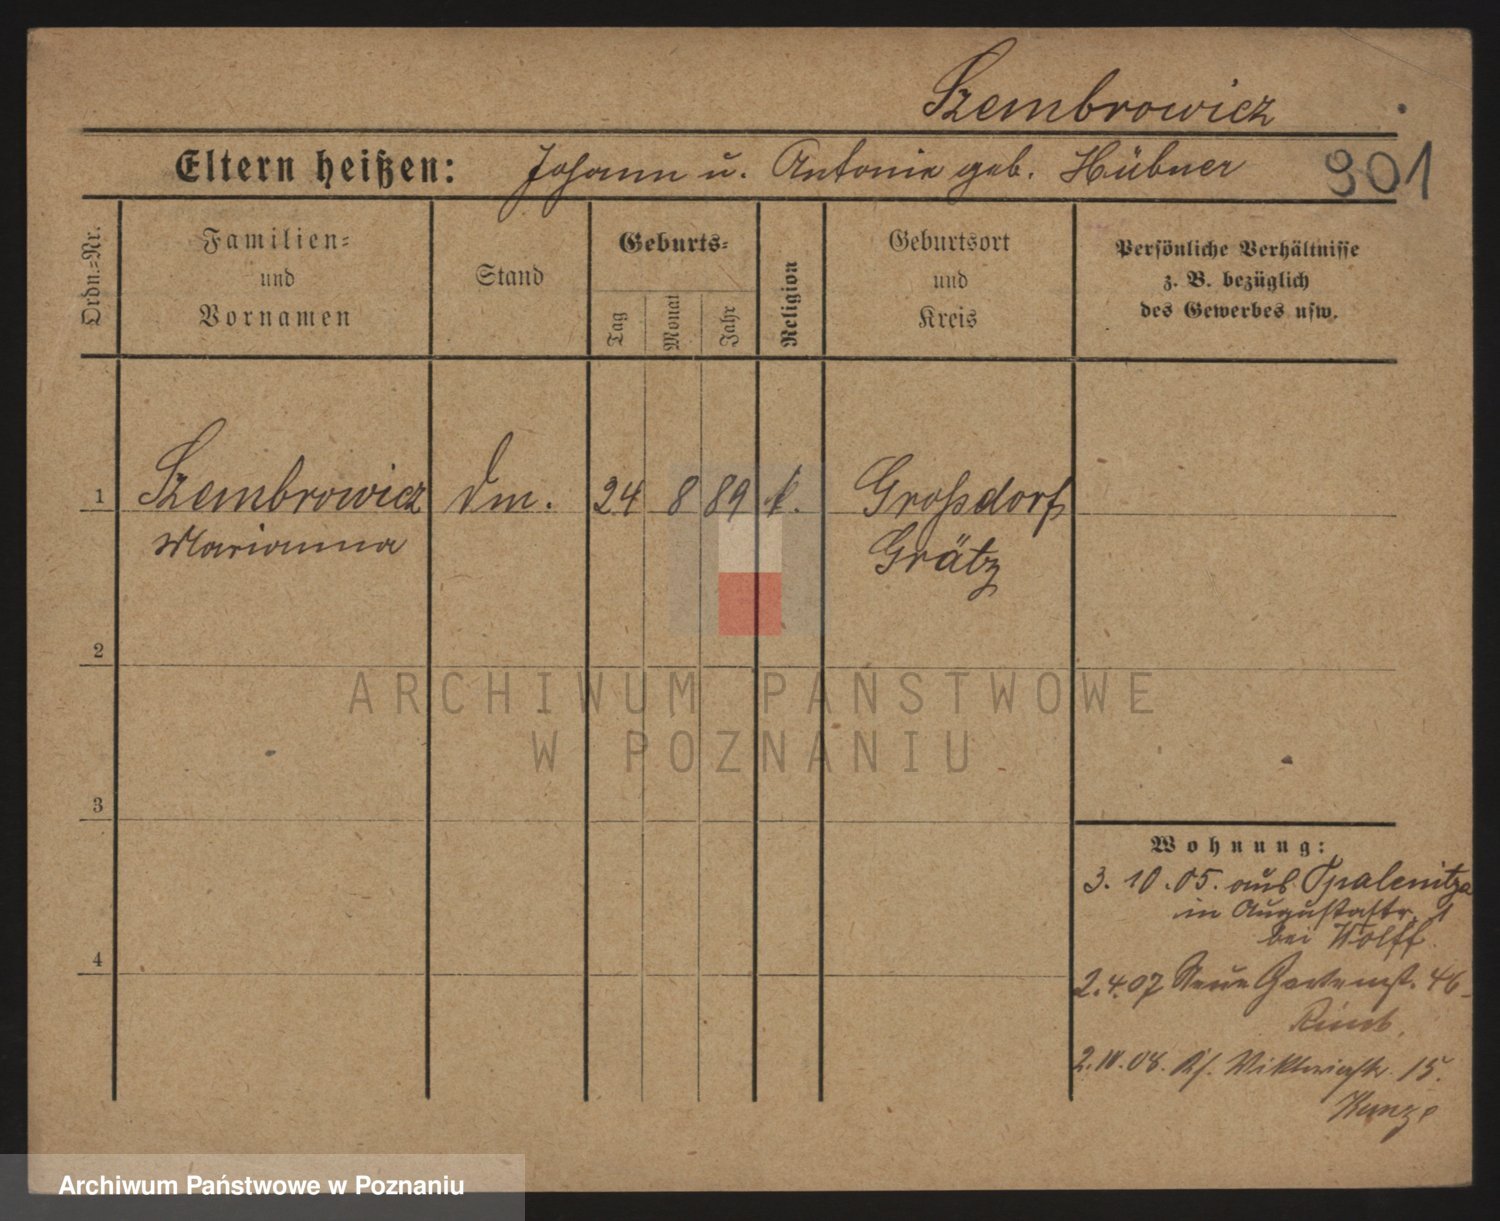 Szembrowicz
Eltern heißen: Johann u. Antonie geb. Hübner
301
Ordn.-Nr.
Familien-
und
Vornamen
Stand
Geburts-
Tag
Monat
Jahr
Religion
Geburtsort
und
Kreis
Persönliche Verhältnisse
z. B. bezüglich
des Gewerbes usw.
1 Szembrowicz Dm. 24 8 89 k. Großdorf
Marianna Grätz
2
ARCHIWUM PAŃSTWOWE
W POZNANIU
3
Wohnung:
3. 10. 05. aus Opalenitza
in Augustastr. 1
bei Wolff.
4
2.4.07 Neue Gartenst. 46
2.IV.08. Viktoriastr. 15.
Kunze
Archiwum Państwowe w Poznaniu